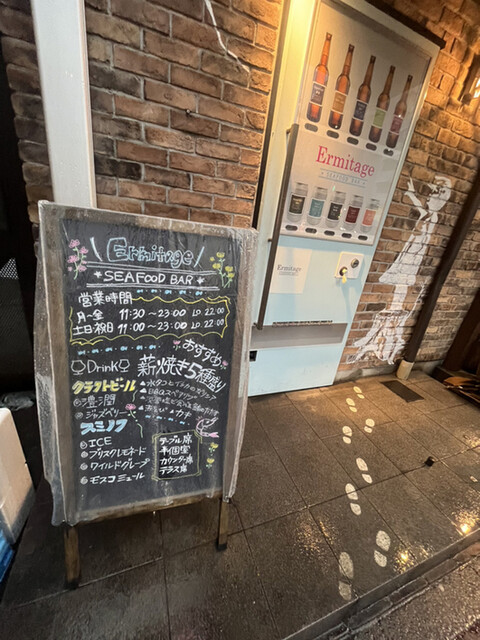 Ermitage
SEAFOOD BAR
営業時間
月-金 11:30～23:00 LO 22:00
土日祝日 11:00～23:00 LO 22:00
おすすめ
Drink
薪焼き5種盛り
クラフトビール
BBQスペアリブ
ジャズベリー
スミノフ
ICE
ブリスクレモネード
ワイルドグレープ
モスコミュール
テーブル席
半個室
カウンター席
テラス席
Ermitage
SEAFOOD BAR
Ermitage